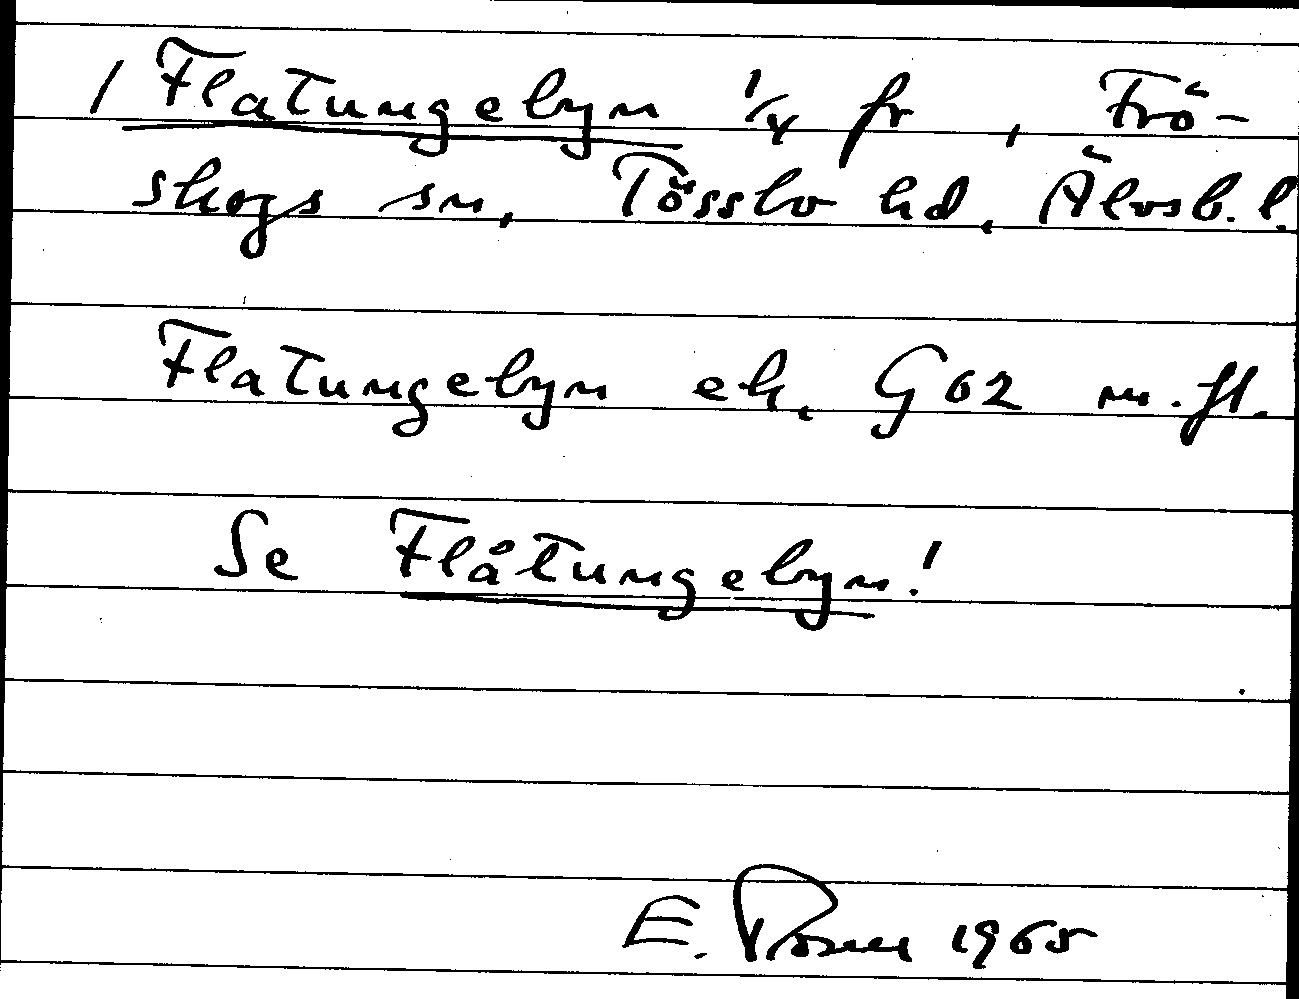 / Flatungebyn 1/4 fr, Frö-
skogs sn, Tössbo hd, Älvsb. l.
Flatungebyn ek. G 62 m.fl.
Se Flåtungebyn!
E. Rosell 1965